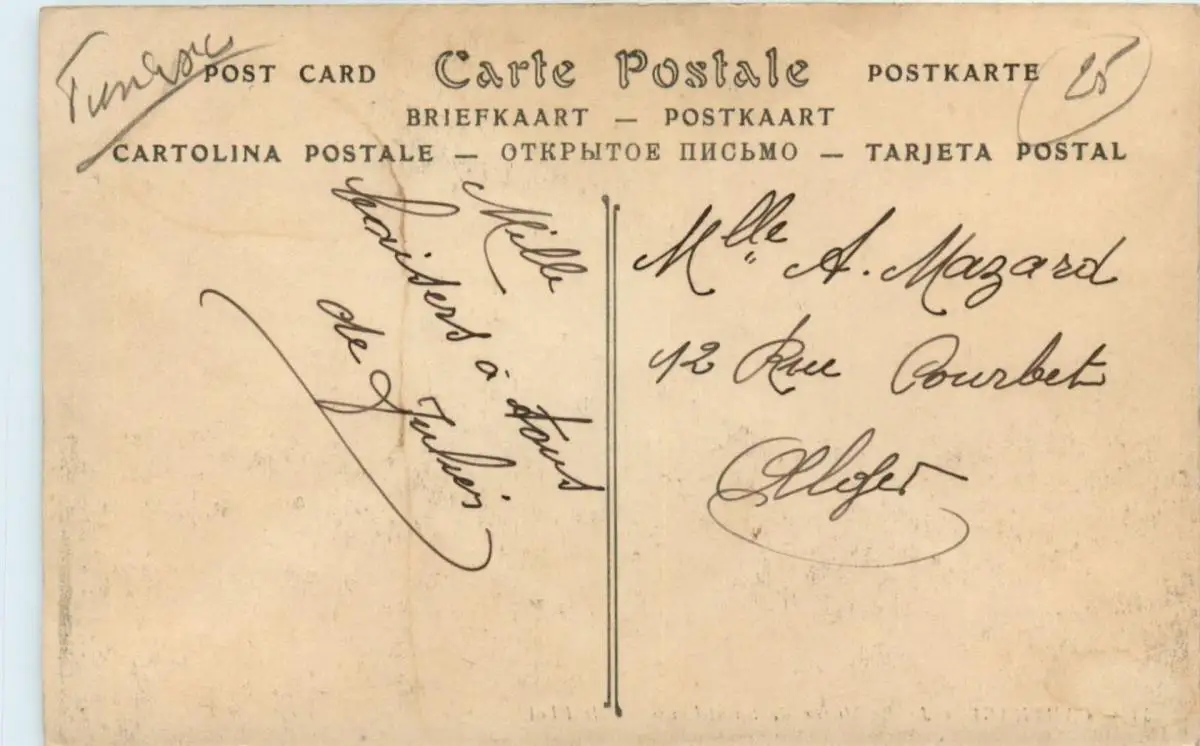 Tunisie
POST CARD Carte Postale POSTKARTE
25
BRIEFKAART — POSTKAART
CARTOLINA POSTALE — ОТКРЫТОЕ ПИСЬМО — TARJETA POSTAL
Mille
baisers à tous
de
Mlle A. Mazard
12 Rue Courbet
Alger